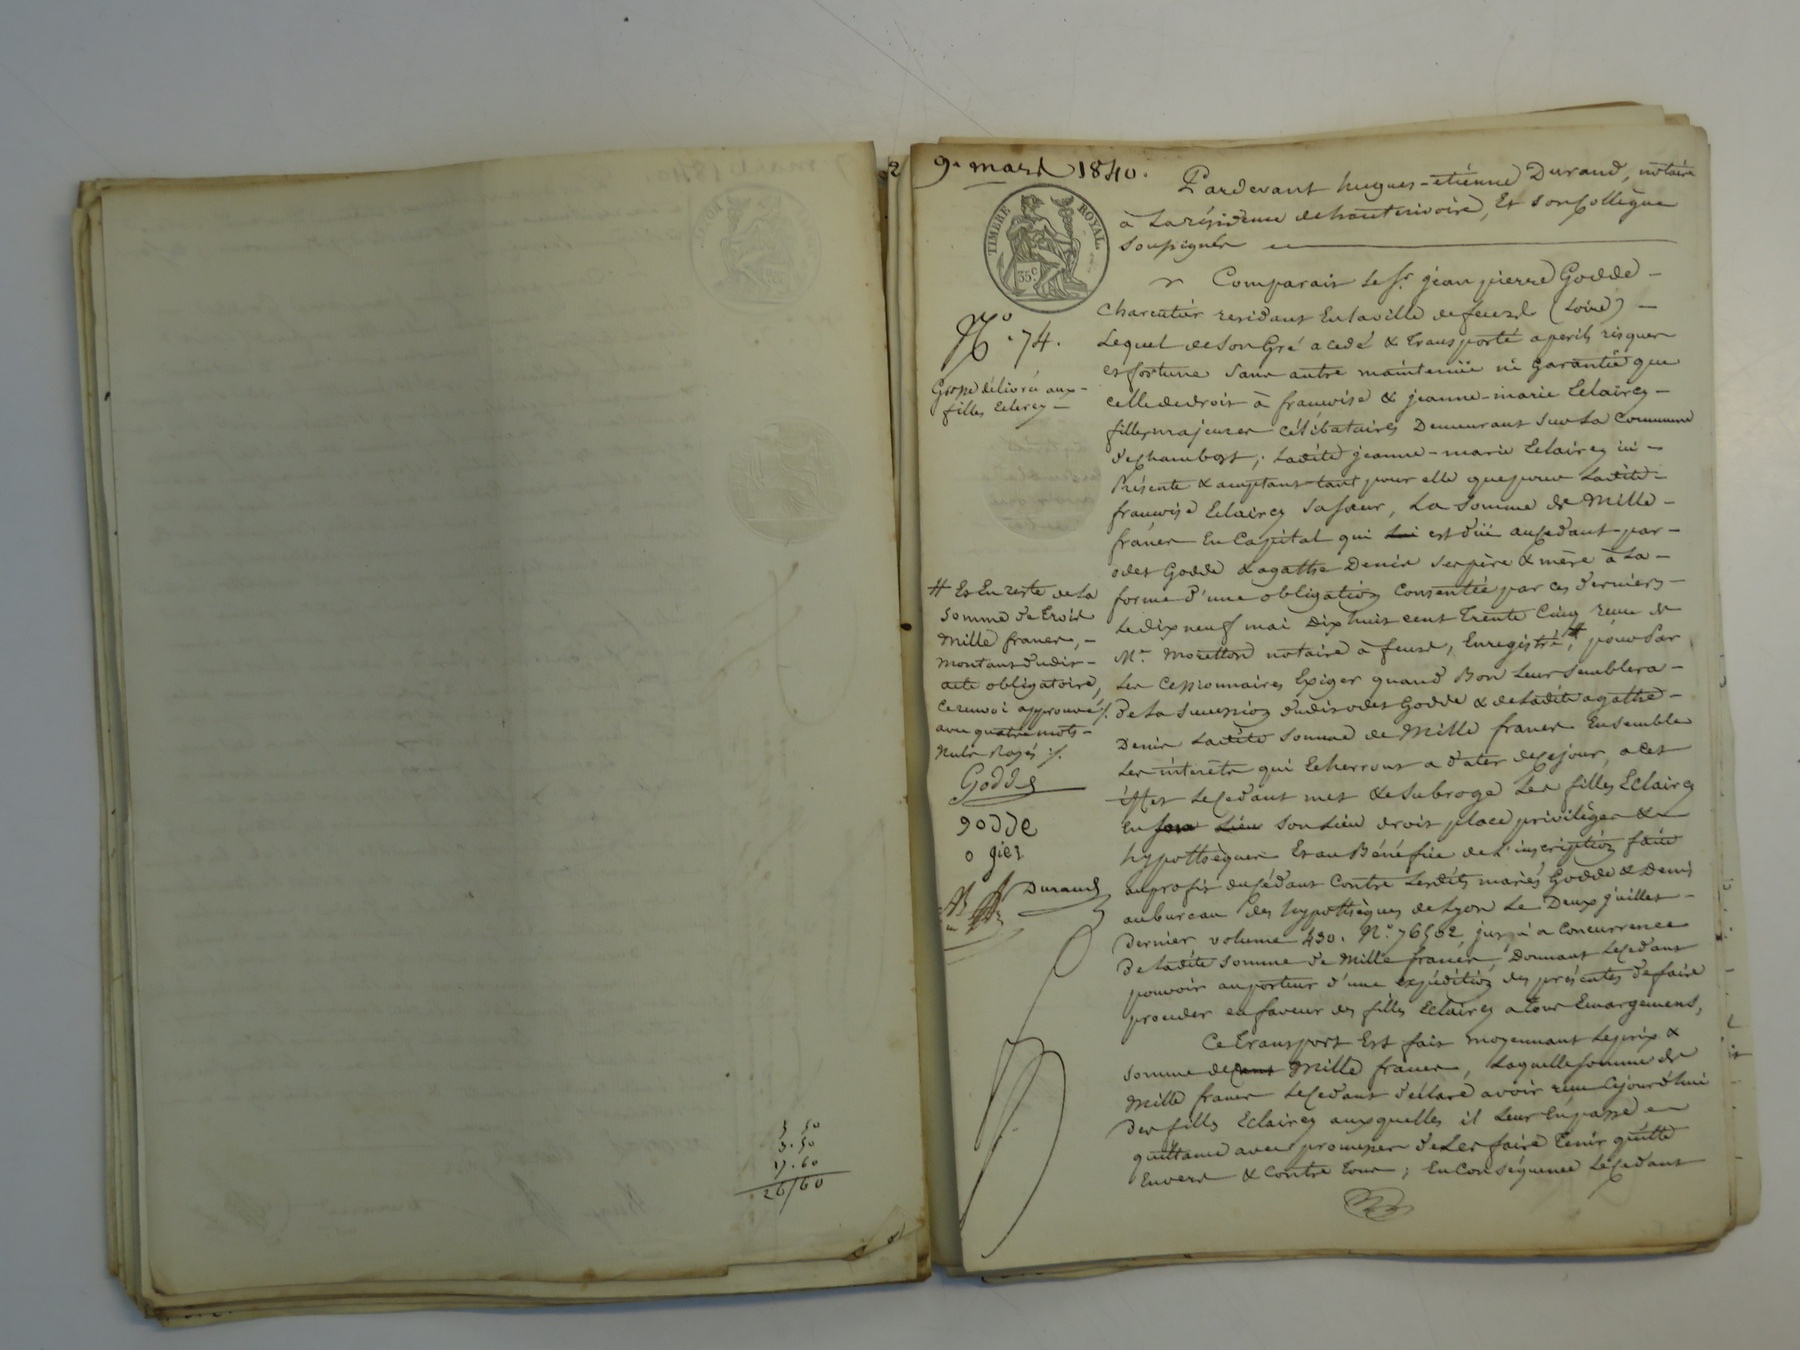 5 50
3.50
17.60
26/60
2
9e mars 1840.
TIMBRE ROYAL.
35c
No. 74.
Grosse délivrée aux
filles Eclercy
Pardevant hugues-étienne Durand, notaire
à La résidence de hauterivoire, Et son Collègue
Soussignés
Comparait Le Sr. jean pierre Godde
Charcutier residant En la ville de feurs (Loire)
Lequel de Son Gré a cedé & Transporté a perils risques
et fortune Sans autre maintenüe ni Garantië que
celle de droit à francoise & jeanne-marie Eclaircy
filles majeures célibataires Demeurant Sur La Commune
de Chambost; Ladite jeanne-marie Eclaircy ici
Présente & acceptant tant pour elle que pour Ladite
francoise Eclaircy Sa Sœur, La Somme de Mille
francs En Capital qui Lui est düe au Cedant par
odet Godde & agathe Denis Ses père & mère à La
forme d'une obligation Consentie par ces derniers
Le dix neuf mai Dix huit cent Trente Cinq reçue de
Me. Mouttond notaire à feurs, Enregistré, # pour Par
Les Cessionnaires Exiger quand Bon Leur Semblera
de La Succession dudit odet Godde & de Ladite agathe
Denis Ladite Somme de Mille francs Ensemble
Les intérêts qui Echerront a dater de ce jour, a cet
Effet Le Cedant met & Subroge Les filles Eclaircy
En Son Lieu Son Lieu droit place privilèges &
hypothèques Et au Bénéfice de L'inscription faite
au profit du Cédant Contre Lesdits mariés Godde & Denis
au bureau des hypothèques de Lyon Le Deux juillet
Dernier volume 430. No. 76502, jusqu'a Concurrence
de Ladite Somme de Mille francs, Donnant Le Cedant
pouvoir au porteur d'une expédition des présentes de faire
proceder en faveur des filles Eclaircy a tous Emargemens,
Ce Transport Est fait moyennant Le prix &
Somme de Cent Mille francs, Laquelle Somme de
Mille francs Le Cedant déclare avoir reçue Cejourd'hui
des filles Eclaircy auxquelles il Leur En passe
quittance avec promesse de Les faire Tenir quitte
Envers & Contre tous; En Conséquence Le Cedant
# Et En reste de La
Somme de Trois
Mille francs,
montant dudit
acte obligatoire,
Ce renvoi approuvé /.
avec quatre mots
Nuls Rayés /.
Godde
godde
ogier
Durand